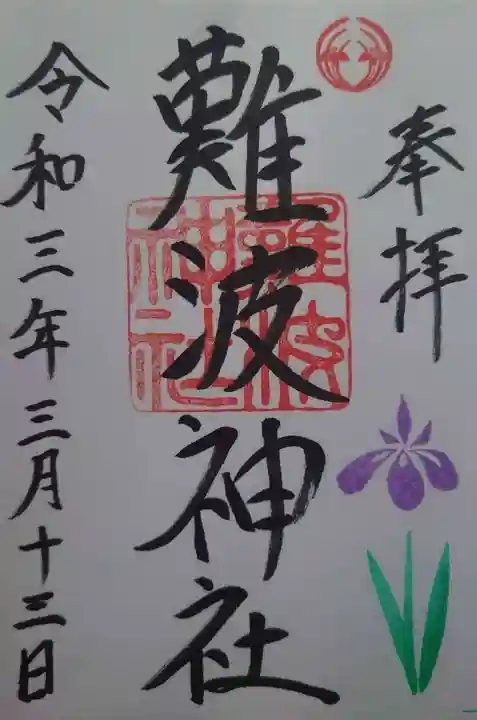 奉拝
難波神社
難波神社
令和三年三月十三日